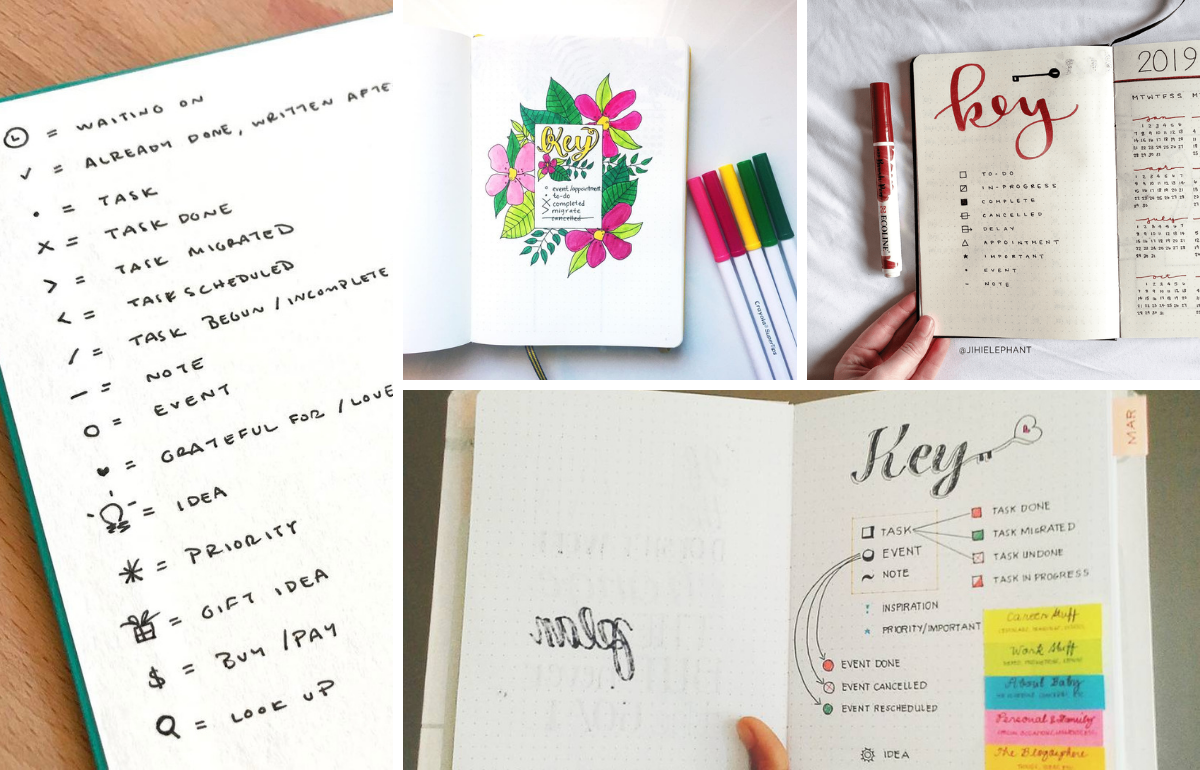 = WAITING ON
✓ = ALREADY DONE, WRITTEN AFTE
• = TASK
X = TASK DONE
> = TASK MIGRATED
< = TASK SCHEDULED
/ = TASK BEGUN / INCOMPLETE
— = NOTE
O = EVENT
♥ = GRATEFUL FOR / LOVE
= IDEA
* = PRIORITY
= GIFT IDEA
$ = BUY / PAY
= LOOK UP
Key
event/appointment
to-do
X completed
> migrate
cancelled
Crayola SuperTips
key
TO-DO
IN-PROGRESS
COMPLETE
CANCELLED
DELAY
APPOINTMENT
IMPORTANT
EVENT
NOTE
@JIHIELEPHANT
2019
MTWTFSS
Key
TASK
EVENT
NOTE
TASK DONE
TASK MIGRATED
TASK UNDONE
TASK IN PROGRESS
! INSPIRATION
* PRIORITY/IMPORTANT
EVENT DONE
EVENT CANCELLED
EVENT RESCHEDULED
IDEA
MAR
Career Stuff
Work Stuff
About Baby
Personal & Family
The Blogosphere